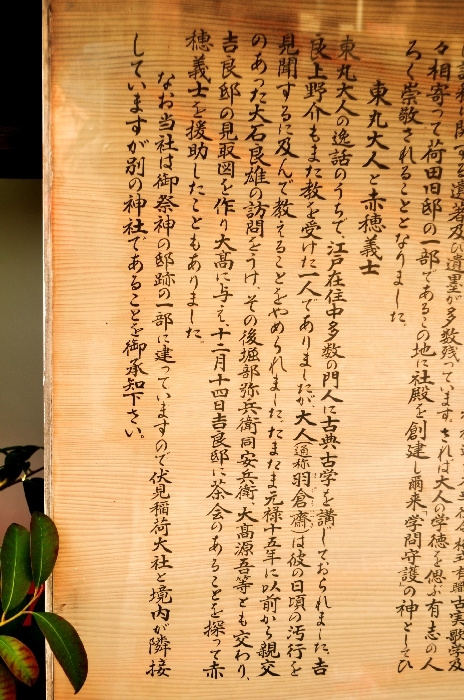 に関する遺著及び遺墨が多数残っています。されば大人の学徳を偲ぶ有志の人
々相寄って荷田旧邸の一部であるこの地に社殿を創建し爾来、学問守護の神としてひ
ろく崇敬されることとなりました。
東丸大人と赤穂義士
東丸大人の逸話のうちで、江戸在住中多数の門人に古典古学を講じておられました。吉
良上野介もまた教を受けた一人でありましたが大人(通称羽倉齋)は彼の日頃の汚行を
見聞するに及んで教えることをやめられました。たまたま元禄十五年に以前から親交
のあった大石良雄の訪問をうけ、その後堀部弥兵衛同安兵衛、大高源吾等とも交わり、
吉良邸の見取図を作り大高に与え、十二月十四日吉良邸に茶会のあることを探って赤
穂義士を援助したこともありました。
なお当社は御祭神の邸跡の一部に建っていますので伏見稲荷大社と境内が隣接
していますが別の神社であることを御承知下さい。